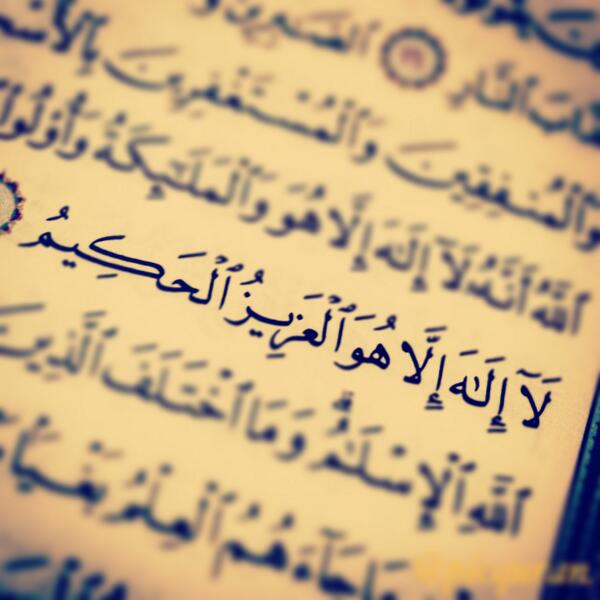 ٱلنَّارِ ۝ ٱلصَّـٰبِرِينَ
وَٱلْمُنفِقِينَ وَٱلْمُسْتَغْفِرِينَ بِٱلْأَسْحَ
ٱللَّهُ أَنَّهُۥ لَآ إِلَـٰهَ إِلَّا هُوَ وَٱلْمَلَـٰٓئِكَةُ وَأُو۟لُوا۟
لَآ إِلَـٰهَ إِلَّا هُوَ ٱلْعَزِيزُ ٱلْحَكِيمُ
ٱللَّهِ ٱلْإِسْلَـٰمُ ۗ وَمَا ٱخْتَلَفَ ٱلَّذِينَ
مَا جَآءَهُمُ ٱلْعِلْمُ بَغْيًا